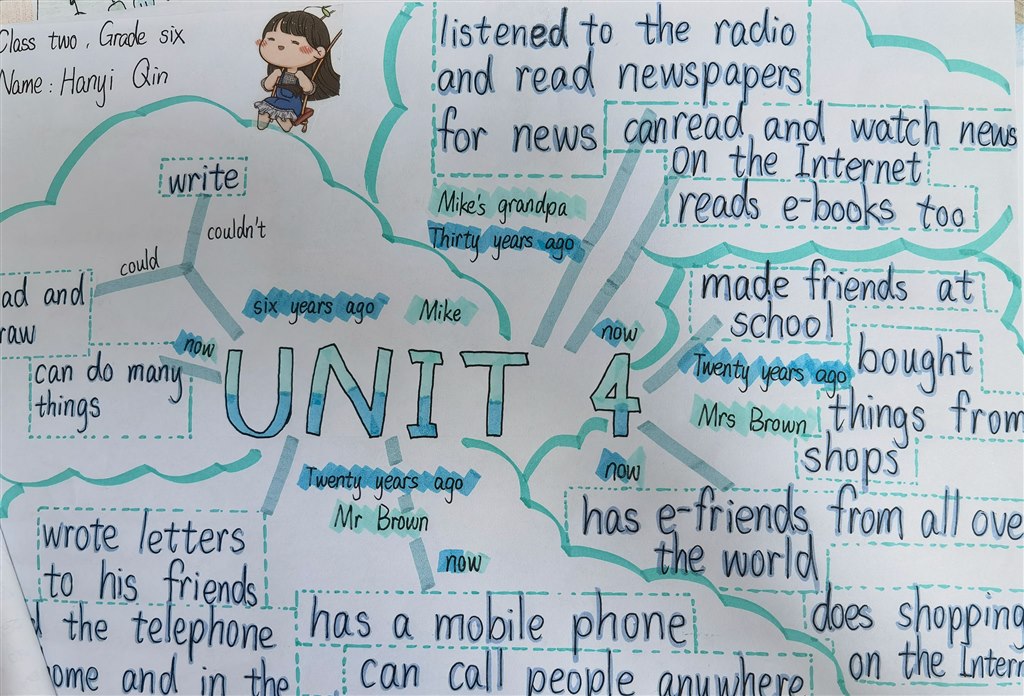 Class two, Grade six
Name: Hanyi Qin
write
couldn't
could
ad and
raw
six years ago
Mike
now
can do many
things
listened to the radio
and read newspapers
for news
can read and watch news
on the Internet
reads e-books too
Mike's grandpa
Thirty years ago
now
UNIT 4
made friends at
school
Twenty years ago
Mrs Brown
bought
things from
shops
now
has e-friends from all ove
the world
does shopping
on the Intern
Twenty years ago
Mr Brown
now
wrote letters
to his friends
the telephone
ome and in the
has a mobile phone
can call people anywhere